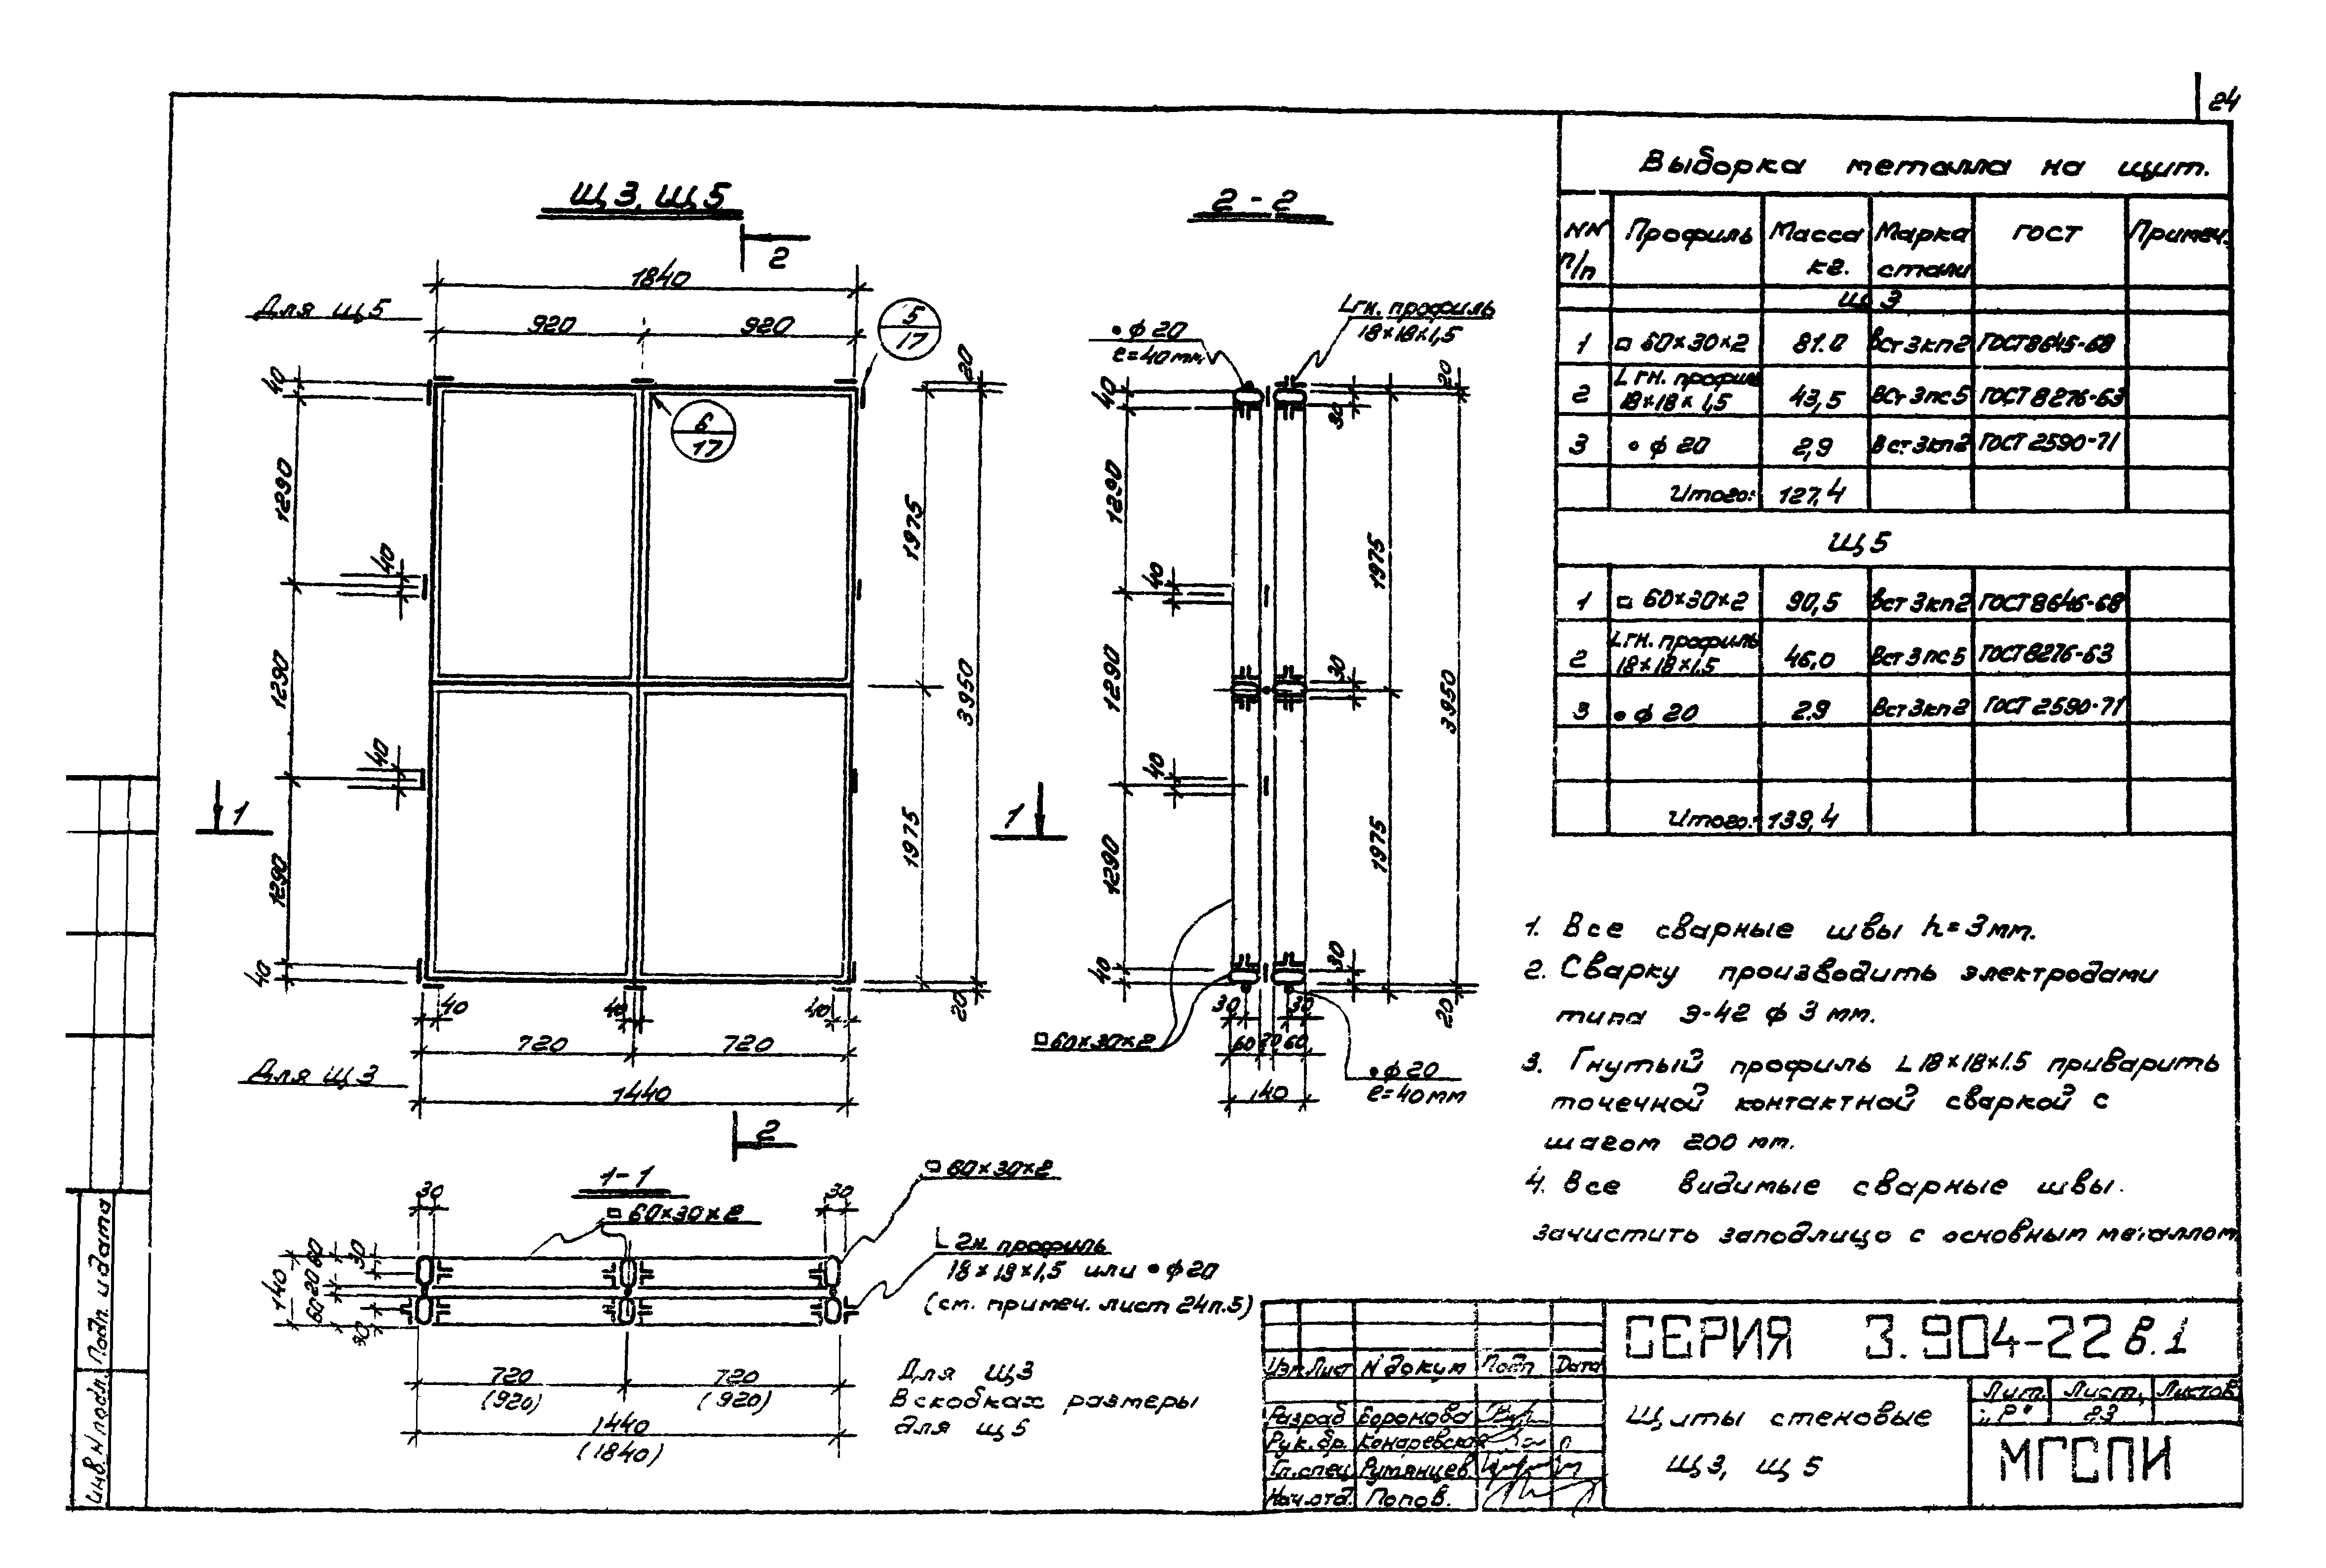 24
Щ3, Щ5
2
1840
Для Щ5
920
920
5
17
6
17
40
1290
40
1290
40
1290
40
20
1975
3950
1975
20
1
1
40
40
40
720
720
Для Щ3
1440
2
2-2
• ф 20
е=40мм
L гн. профиль
18×18×1,5
40
1290
40
1290
40
1290
40
20
30
1975
30
3950
1975
30
20
30
30
60
20
60
140
□ 60×30×2
• ф 20
е=40мм
1-1
30
30
□ 60×30×2
□ 60×30×2
140
60
20
60
30
30
L гн. профиль
18×18×1,5 или • ф 20
(см. примеч. лист 24п.5)
720
(920)
720
(920)
1440
(1840)
Для Щ3
В скобках размеры
для щ5
Выборка металла на щит.
NN п/п Профиль Масса кг. Марка стали ГОСТ Примеч.
Щ 3
1 □ 60×30×2 81.0 Вст3кп2 ГОСТ8645-68
2 L гн. профиль 18×18×1,5 43,5 Вст3пс5 ГОСТ8276-63
3 • ф 20 2,9 Вст3кп2 ГОСТ 2590-71
Итого: 127,4
Щ5
1 □ 60×30×2 90,5 Вст3кп2 ГОСТ8646-68
2 L гн. профиль 18×18×1.5 46,0 Вст3пс5 ГОСТ8276-63
3 • ф 20 2.9 Вст3кп2 ГОСТ 2590-71
Итого: 139,4
1. Все сварные швы h=3мм.
2. Сварку производить электродами
типа Э-42 ф 3 мм.
3. Гнутый профиль L 18×18×1.5 приварить
точечной контактной сваркой с
шагом 200 мм.
4. Все видимые сварные швы.
зачистить заподлицо с основным металлом
Изм. Лист N докум Подп Дата
Разраб Боронова
Рук.бр. Конаревская
Гл.спец Румянцев
Нач.отд. Попов.
СЕРИЯ 3.904-22 в.1
Щиты стеновые
Щ3, Щ5
Лит. Лист. Листов
„Р" 23
МГСПИ
Подп. и дата
Инв. N подл.